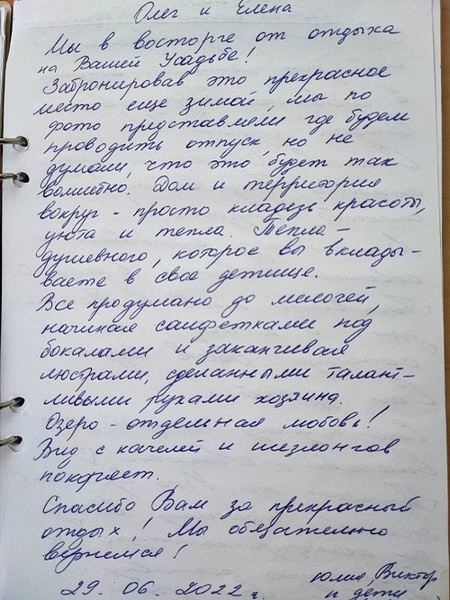 Олег и Елена
Мы в восторге от отдыха
на Вашей Усадьбе!
Забронировав это прекрасное
место еще зимой, мы по
фото представляли где будем
проводить отпуск, но не
думали, что это будет так
волшебно. Дом и территория
вокруг - просто кладезь красоты,
уюта и тепла. Тепла-
душевного, которое вы вклады-
ваете в свое детище.
Все продумано до мелочей,
начиная салфетками под
бокалами и заканчивая
люстрами, сделанными талант-
ливыми руками хозяина.
Озеро - отдельная любовь!
Вид с качелей и шезлонгов
покоряет.
Спасибо Вам за прекрасный
отдых! Мы обязательно
вернемся!
29. 06. 2022 г. Юлия, Виктор
и дети